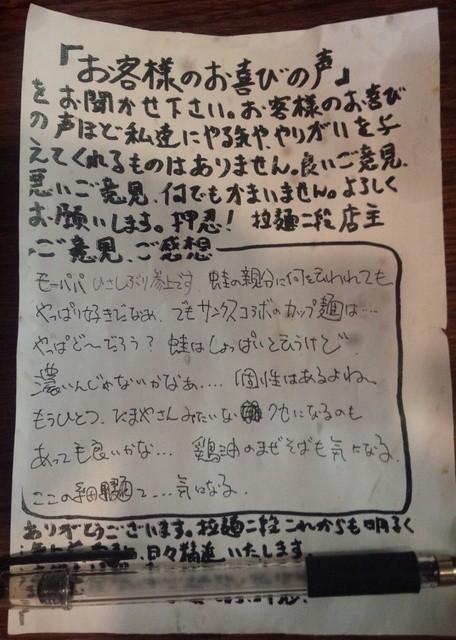 『お客様のお喜びの声』
をお聞かせ下さい。お客様のお喜び
の声ほど私達にやる気や、やりがいを与
えてくれるものはありません。良いご意見、
悪いご意見、何でもかまいません。よろしく
お願いします。押忍! 拉麺二段 店主
ご意見、ご感想
モーパパ ひさしぶり参上です。蛙の親分に何を云われても
やっぱり好きだなぁ。でもサンクスコラボのカップ麺は…
やっぱど〜だろう? 蛙はしょっぱいと云うけど
濃いんじゃないかなぁ…. 個性はあるよね〜
もうひとつ、ひまやさんみたいな クセになるのも
あっても良いかな… 鶏油のまぜそばも気になる。
ここの細麺って…気になる。
ありがとうございます。拉麺二段これからも明るく
日々精進いたします。